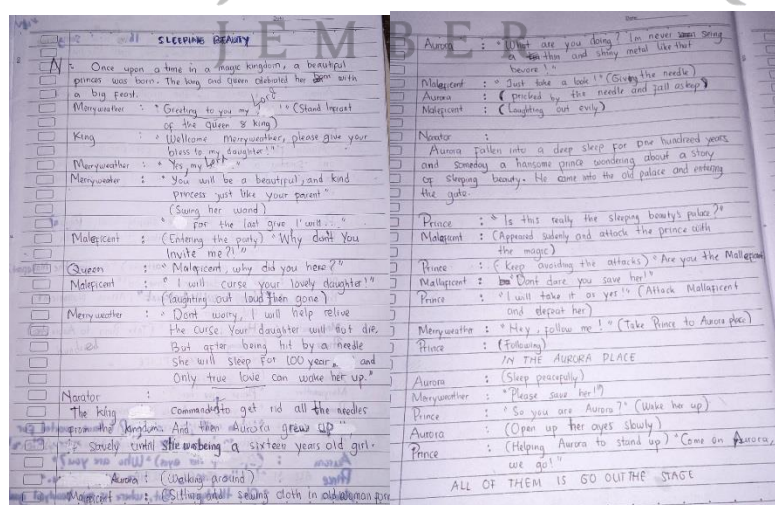 JEMBER
SLEEPING BEAUTY
N : Once upon a time in a magic kingdom, a beautiful
princes was born. The king and Queen celebrated her born with
a big feast.
Merryweather : "Greeting to you my Lord!" (Stand infront
of the queen & king)
King : "Wellcome Merryweather, please give your
bless to my daughter!"
Merryweather : "Yes, my Lord"
Merryweater : "You will be a beautiful, and kind
princess just like your parent"
(Swing her wand)
"For the last give I will..."
Maleficent : (Entering the party) "Why don't You
Invite me?!"
Queen : "Maleficent, why did you here?"
Maleficent : "I will curse your lovely daughter!"
(laughting out loud then gone)
Merryweather : "Dont worry, I will help relive
the curse. Your daughter will not die,
But after being hit by a needle
she will sleep for 100 year, and
Only true love can wake her up."
Narator :
The king commanded to get rid all the needles
from the kingdom. And then Aurora grew up
savely until she was being a sixteen years old girl.
Aurora : (Walking around)
Maleficent : (Sitting and sewing cloth in old woman
Aurora : "What are you doing? Im never seing
a thin and shiny metal like that
bevore!"
Maleficent : "Just take a look!" (Giving the needle)
Aurora : (pricked by the needle and fall asleep)
Maleficent : (Laughting out evily)
Narator :
Aurora fallen into a deep sleep for one hundred years
and someday a hansome prince wondering about a story
of sleeping beauty. He come into the old palace and entering
the gate.
Prince : "Is this really the sleeping beauty's palace?"
Malefisent : (Appeared sudenly and attack the prince with
the magic)
Prince : (Keep avoiding the attacks) "Are you the Mallefisent
Mallafisent : "Dont dare you save her!"
Prince : "I will take it as yes!" (Attack Mallafisent
and defeat her)
Merryweather : "Hey, follow me!" (Take Prince to Aurora place)
Prince : (Following)
IN THE AURORA PLACE
Aurora : (Sleep peacefully)
Merryweather : "Please save her!"
Prince : "So you are Aurora?" (Wake her up)
Aurora : (Open up her ayes slowly)
Prince : (Helping Aurora to stand up) "Come on Aurora,
we go!"
ALL OF THEM IS GO OUT THE STAGE